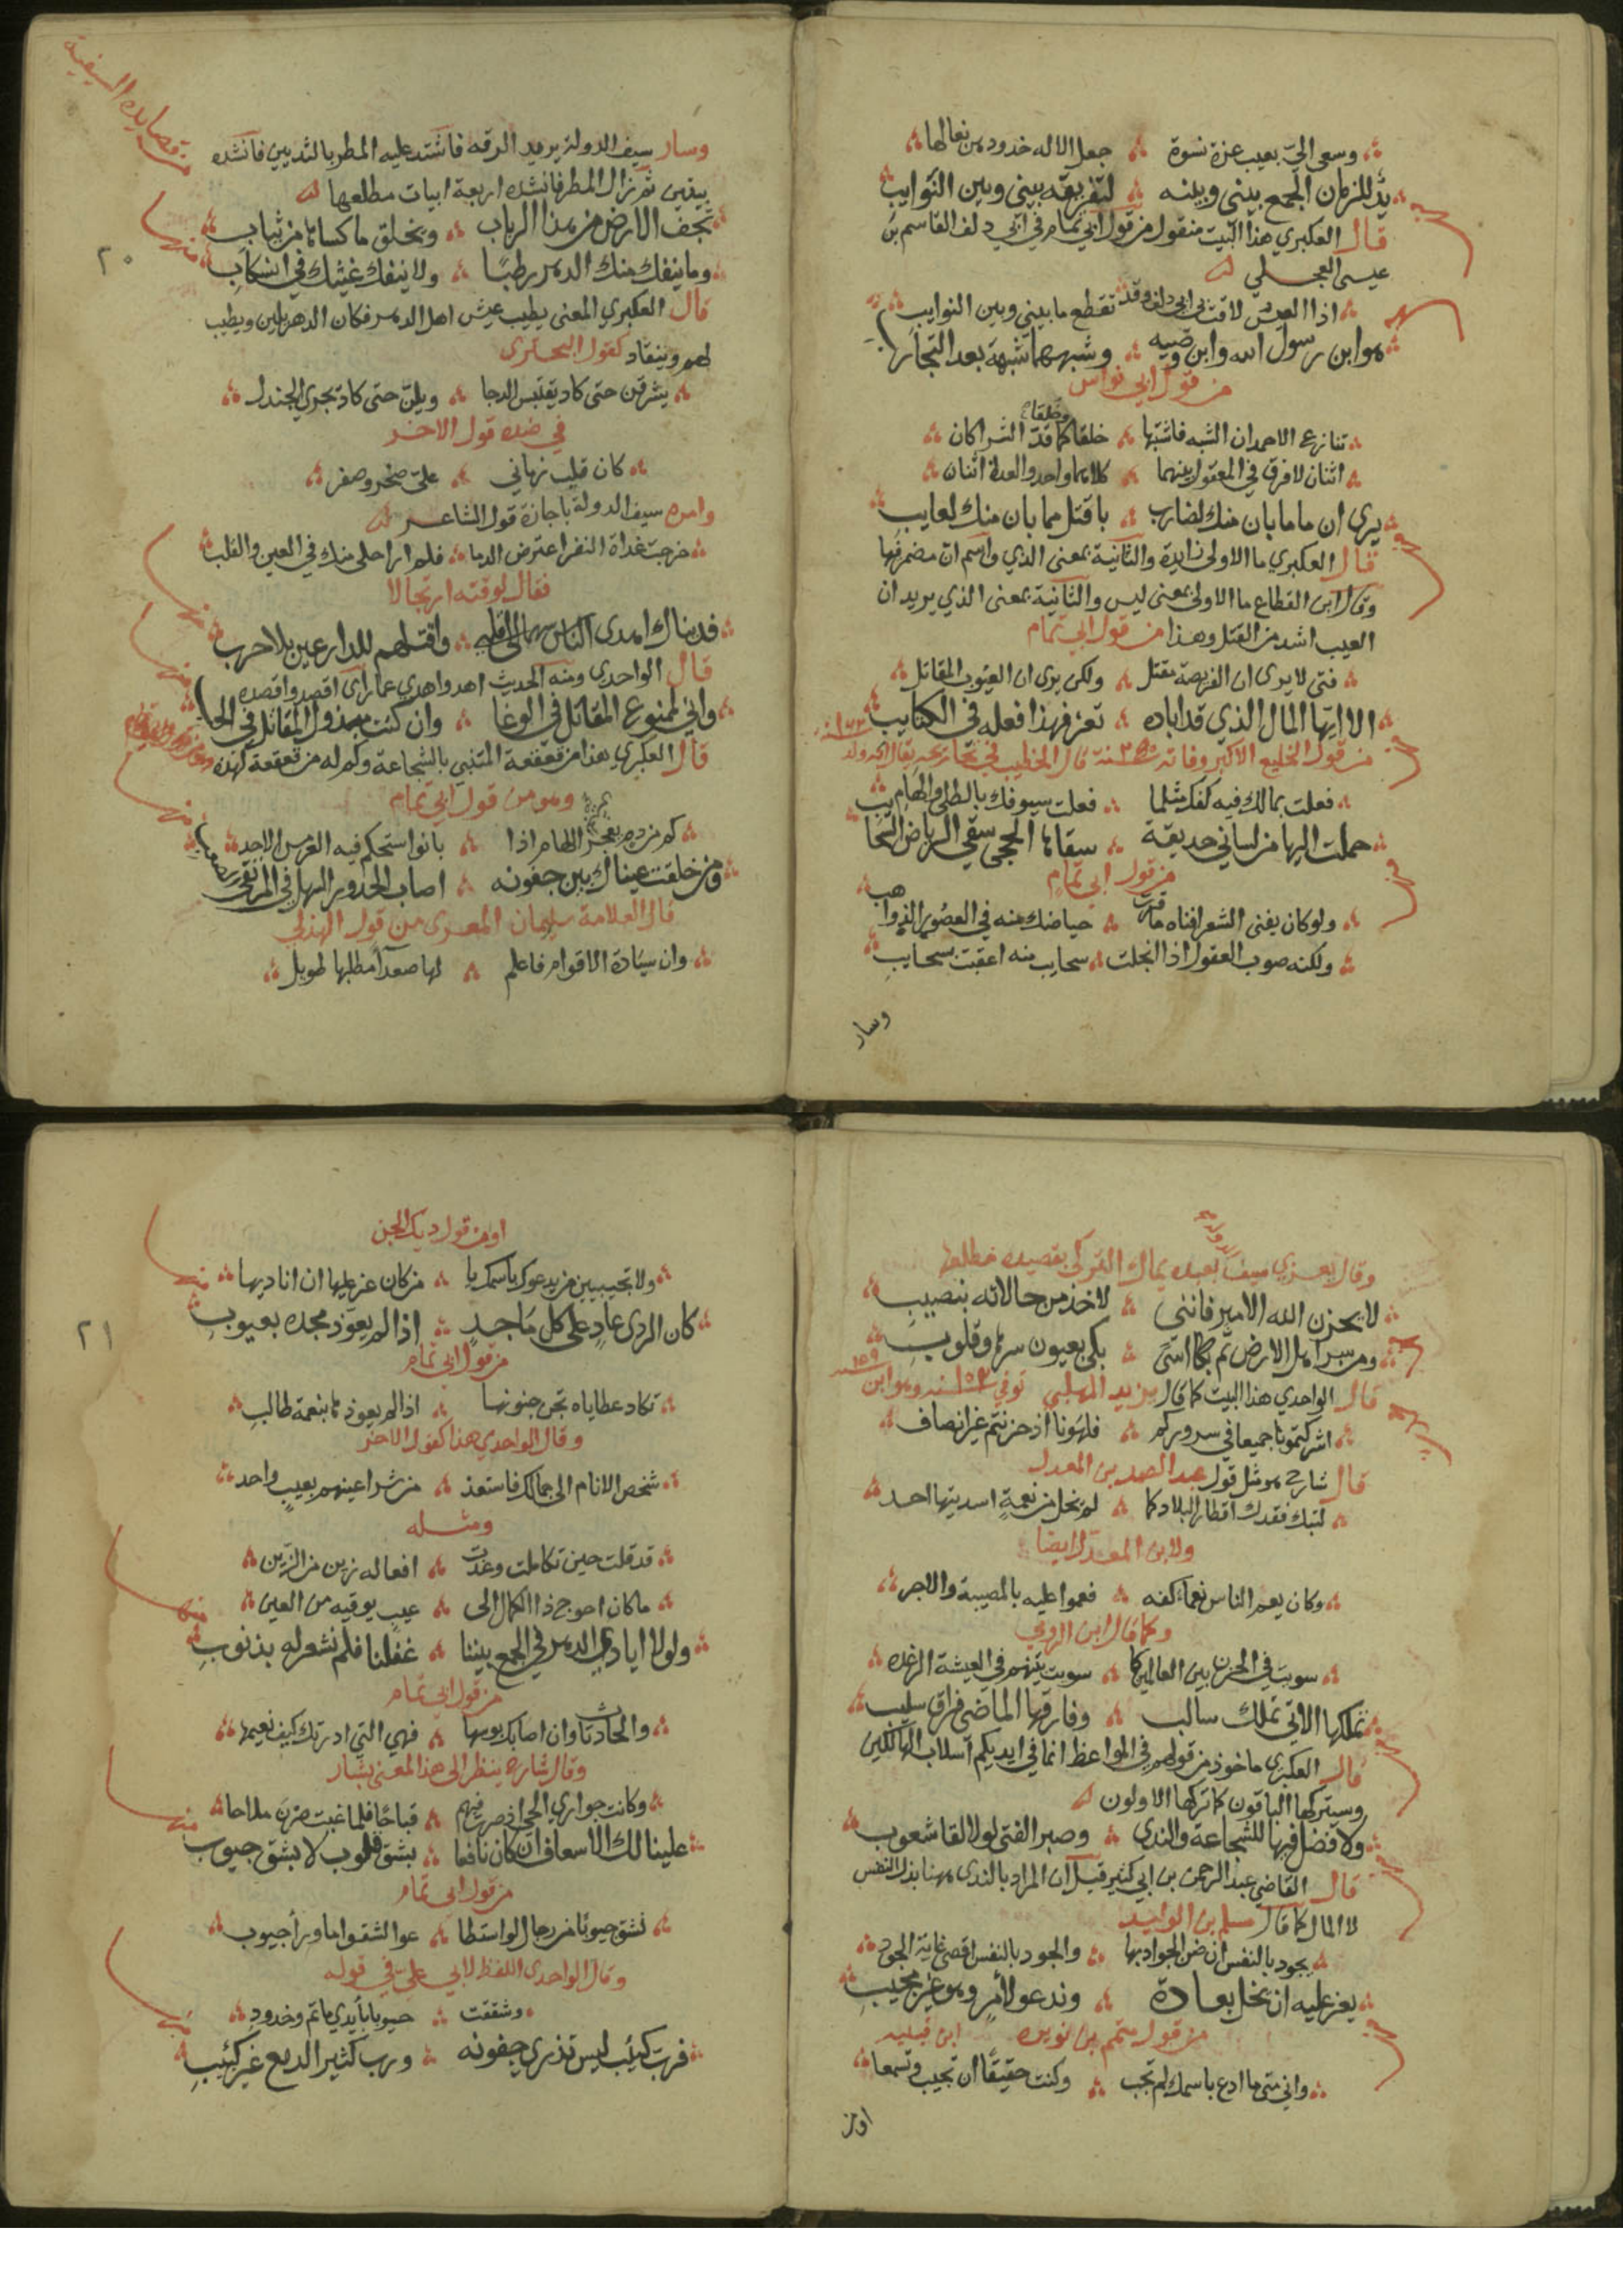 وسعى اليّ بعيب عزة نسوة ؞ جعل الاله خدودهن نعالها
يدٌ للزمان الجمع بيني وبينه ؞ لتفريقه بيني وبين النوايب
قال العكبري هذا البيت منقول من قول ابي تمام في ابي دلف القاسم بن
عيسى العجلي
اذا العيس لاقت بي ابي دلف فقد ؞ تقطع ما بيني وبين النوايب
هو ابن رسول الله وابن وصيه ؞ وشبههما شبهت بعد التجارب
من قول ابي نواس
تنازع الاحمدان الشبه فاشتبها ؞ خلقا وخلقا كما قدّ الشراكان
اثنان لا فرق في المعقول بينهما ؞ كلاهما واحد والعدة اثنان
يرى ان ما ما بان منك لضارب ؞ باقتل مما بان منك لعايب
قال العكبري ما الاولى زايدة والثانية بمعنى الذي واسم ان مضمر فيها
وقال ابن القطاع ما الاولى بمعنى ليس والثانية بمعنى الذي يريد ان
العيب اشد من القتل وهذا من قول ابي تمام
فتى لا يرى ان الفريصة مقتل ؞ ولكن يرى ان العيوب المقاتل
الا ايها المال الذي قد اباده ؞ تعز فهذا فعله في الكتايب
من قول الخليع الاكبر وفاته
فعلت بمالك فيه كفك مثلما ؞ فعلت سيوفك بالطلى والهام
حملت اليها من لساني حديقة ؞ سقاها الحجى سقي الرياض السحايب
من قول ابي تمام
ولو كان يفنى الشعر افناه ما قرت ؞ حياضك منه في العصور الذواهب
ولكنه صوب العقول اذا انجلت ؞ سحايب منه اعقبت بسحايب
وسار
من قصايده السيفية
وسار سيف الدولة يريد الرقه فاشتد عليه المطر بالثديين فانشده
بيتين ثم زال المطر فانشده اربعة ابيات مطلعها
تجف الارض من هذا الرباب ؞ ويخلق ما كساها من ثياب
٢٠
وما ينفك منك الدهر رطبًا ؞ ولا ينفك غيثك في انسكاب
قال العكبري المعنى يطيب عيش اهل الدهر فكان الدهر يلين ويطيب
لهم وينقاد كقول البحتري
يشرقن حتى كاد يقتبس الدجا ؞ ويلن حتى كاد تجري الجندل
في ضده قول الاخر
كان قلب زماني ؞ عليّ صخر وصفر
وامره سيف الدولة باجازة قول الشاعر
خرجت غداة النفر اعترض الدما ؞ فلم ار احلى منك في العين والقلب
فقال لوقته ارتجالا
فديناك اهدى الناس سهما الى قلبي ؞ واقتلهم للدارعين بلا حرب
قال الواحدي ومنه الحديث اهد واهدي عمار اى اقصد واقصده
واني لممنوع المقاتل في الوغا ؞ وان كنت مبذول المقاتل في الحب
قال العكبري هذا من قعقعة المتنبي بالشجاعة وكم له من قعقعة كهذه
وهو من قول ابي تمام
كم من دم يعجز الهام اذا ؞ بانوا استحكم فيه العرمس الاجد
ومن خلقت عيناك بين جفونه ؞ اصاب الحدور السهل في المرتقى الصعب
قال العلامة سليمان المعري من قول الهذلي
وان سيادة الاقوام فاعلم ؞ لها صعدا مطلبها طويل
وقال يعزي سيف الدولة بعبده يماك التركي بقصيده مطلعها
لا يحزن الله الامير فانني ؞ لاخذ من حالاته بنصيب
ومن سر اهل الارض ثم بكا اسىً ؞ بكى بعيون سرها وقلوب
قال الواحدي هذا البيت كما قال يزيد المهلبي
اشركتمونا جميعا في سروركم ؞ فلهونا اذ حزنتم غير انصاف
قال شارح هو مثل قول عبد الصمد بن المعدل
لتبك فقدك اقطار البلاد كما ؞ لم تخل من نعمة اسديتها احد
ولابن المعدل ايضا
وكان يعم الناس نعماء كفه ؞ فعموا عليه بالمصيبة والاجر
وكما قال ابن الرومي
سويت في الحزن بين العالمين كما ؞ سويت بينهم في العيشة الرغده
تملكها الاتي تملك سالب ؞ وفارقها الماضي فراق سليب
قال العكبري ماخوذ من قولهم في المواعظ انما في ايديكم اسلاب الهالكين
وسيتركها الباقون كما تركها الاولون
ولا فضل فيها للشجاعة والندى ؞ وصبر الفتى لولا لقا شعوب
قال القاضي عبد الرحمن بن ابي كثير قيل ان المراد بالندى هنا بذل النفس
لا المال كما قال مسلم بن الوليد
يجود بالنفس ان ضن الجواد بها ؞ والجود بالنفس اقصى غاية الجود
يعز عليه ان يخل بعادة ؞ وتدعو لامر وهو غير مجيب
من قول متمم بن نويره
واني متى ما ادع باسمك لم تجب ؞ وكنت حقيقًا ان تجيب وتسمعا
او من
او من قول ديك الجن
ولا تجيبين من يدعوك باسمك يا ؞ من كان عز عليها ان اناديها
كان الردى عاد على كل ماجد ؞ اذا لم يعوّذ مجده بعيوب
٢١
من قول ابي تمام
تكاد عطاياه تجن جنونها ؞ اذا لم يعوذها بنعمة طالب
وقال الواحدي هذا كقول الاخر
شخص الانام الى جمالك فاستعذ ؞ من شر اعينهم بعيب واحد
ومثله
قد قلت حين تكاملت وغدت ؞ افعاله زين من الزين
ما كان احوج ذا الكمال الى ؞ عيب يوقيه من العين
ولولا ايادي الدهر في الجمع بيننا ؞ غفلنا فلم نشعر له بذنوب
من قول ابي تمام
والحادثات وان اصابك بوسها ؞ فهي التي ادرتك كيف نعيمها
وقال شارح ينظر الى هذا المعنى بشار
وكانت جواري الحي اذ صرت فيهم ؞ قباحًا فلما غبت صرن ملاحا
علينا لك الاسعاف ان كان نافعا ؞ بشق قلوب لا بشق جيوب
من قول ابي تمام
تشق جيوبًا من رجال لو استطا ؞ عوا لشقوا ما وراء جيوب
وقال الواحدي اللفظ لابي علي في قوله
وشققت ؞ جيوبا بأيدي ماتم وخدود
فرب كئيب ليس تندى جفونه ؞ ورب كثير الدمع غير كئيب